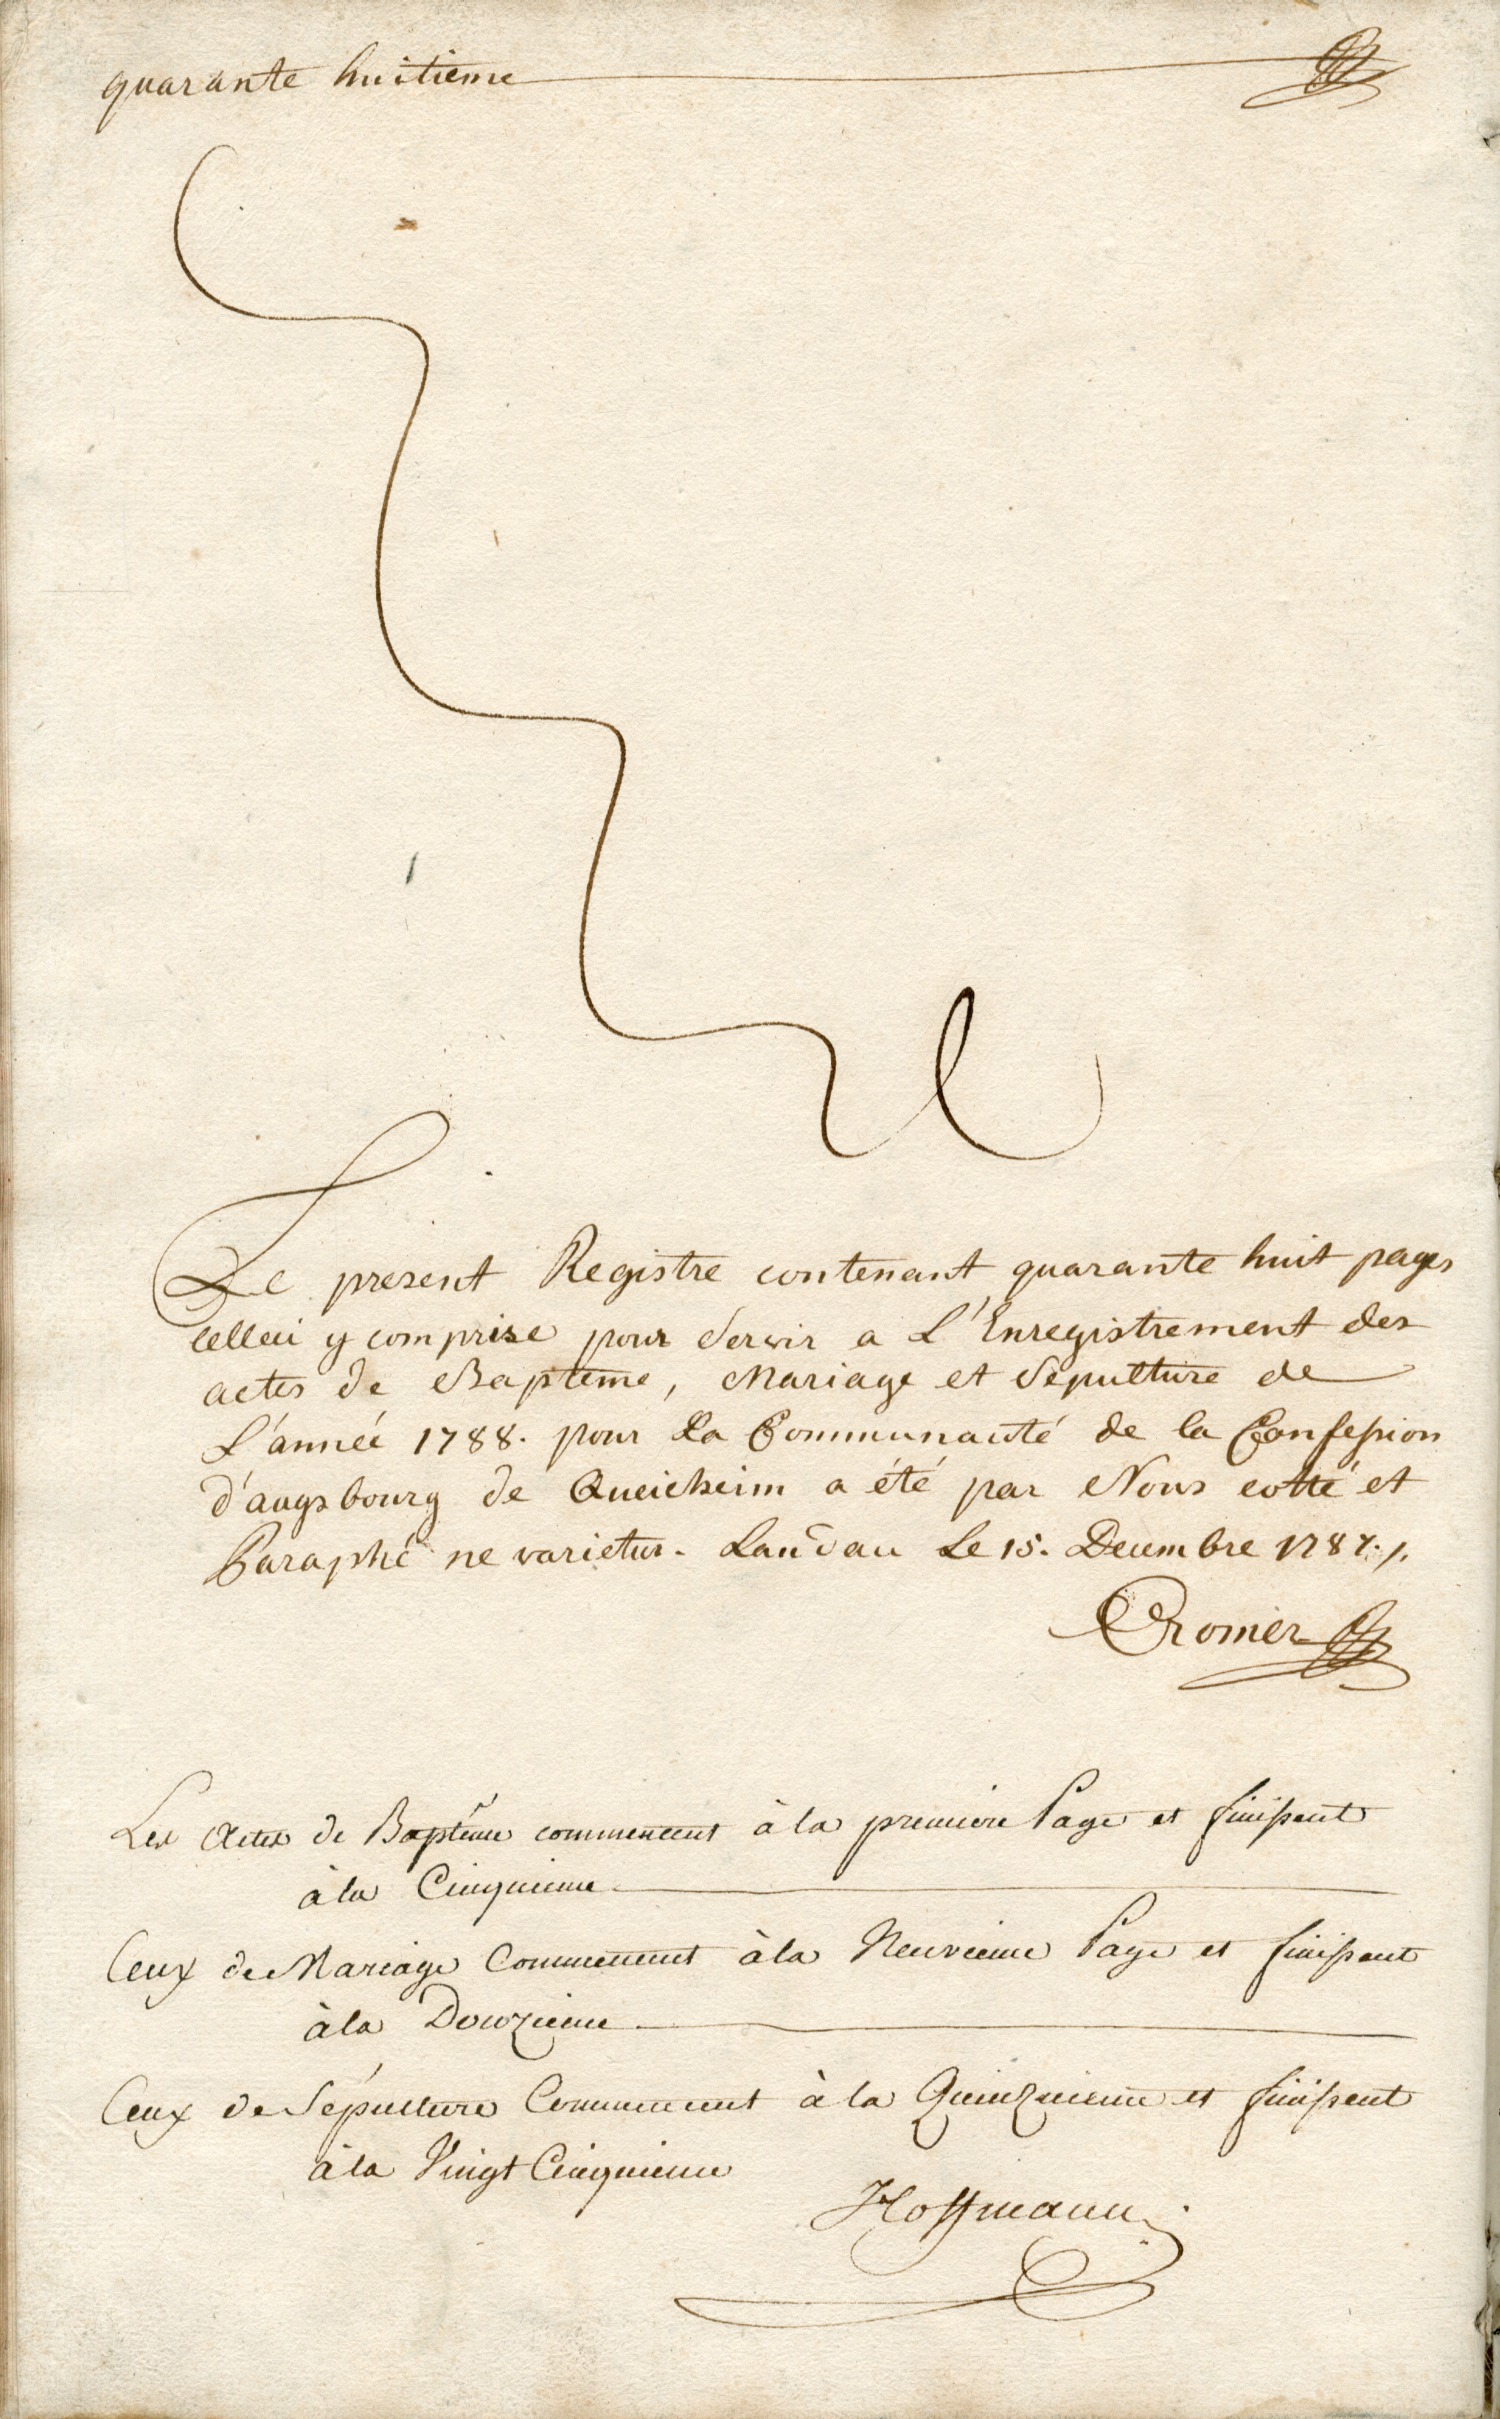 quarante huitieme
Le present Registre contenant quarante huit pages
celleci y comprise pour servir a L'Enregistrement des
actes de Bapteme, Mariage et Sepulture de
L'année 1788. pour La Communauté de la Confession
d'augsbourg de Queicheim a été par Nous cotté et
Paraphé ne varietur. Landau Le 15. Decembre 1787./.
Cromer
Les Actes de Baptême commencent à la premiere Page et finissent
à la Cinquieme
Ceux de Mariage Commencent à la Neuvieme Page et finissent
à la Douzieme
Ceux de Sépulture Commencent à la Quinzieme et finissent
à la Vingt Cinquieme
Hoffmann